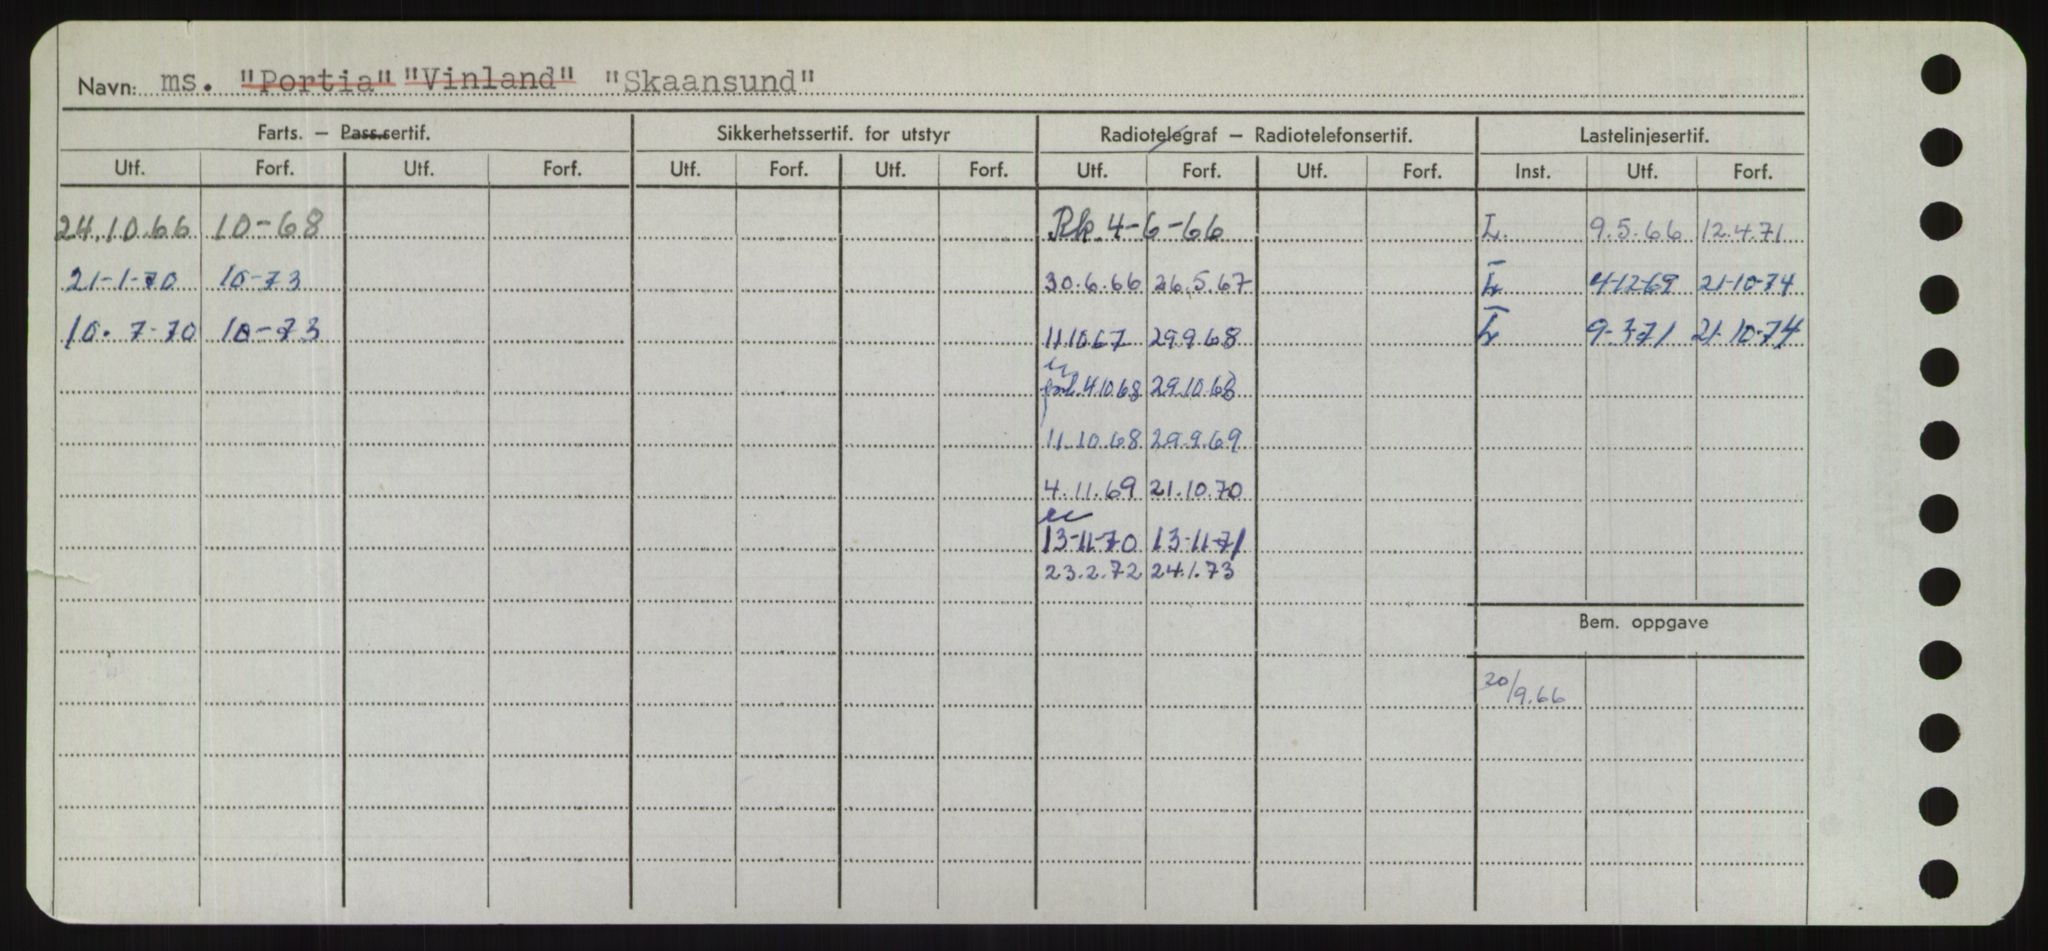 Navn: ms. "Portia" "Vinland" "Skaansund"
Farts. — Pass.sertif. Sikkerhetssertif. for utstyr Radiotelegraf — Radiotelefonsertif. Lastelinjesertif.
Utf. Forf. Utf. Forf. Utf. Forf. Utf. Forf. Utf. Forf. Utf. Forf. Inst. Utf. Forf.
24.10.66 10-68 Rk. 4-6-66 L. 9.5.66 12.4.71
21-1-70 10-73 30.6.66 26.5.67 L 4-12-69 21-10-74
10. 7-70 10-73 11.10.67 29.9.68 L 9-3-71 21-10-74
4.10.68 29.10.68
11.10.68 29.9.69
4.11.69 21.10.70
13-11-70 13-11-71
23.2.72 24.1.73
Bem. oppgave
20/9.66